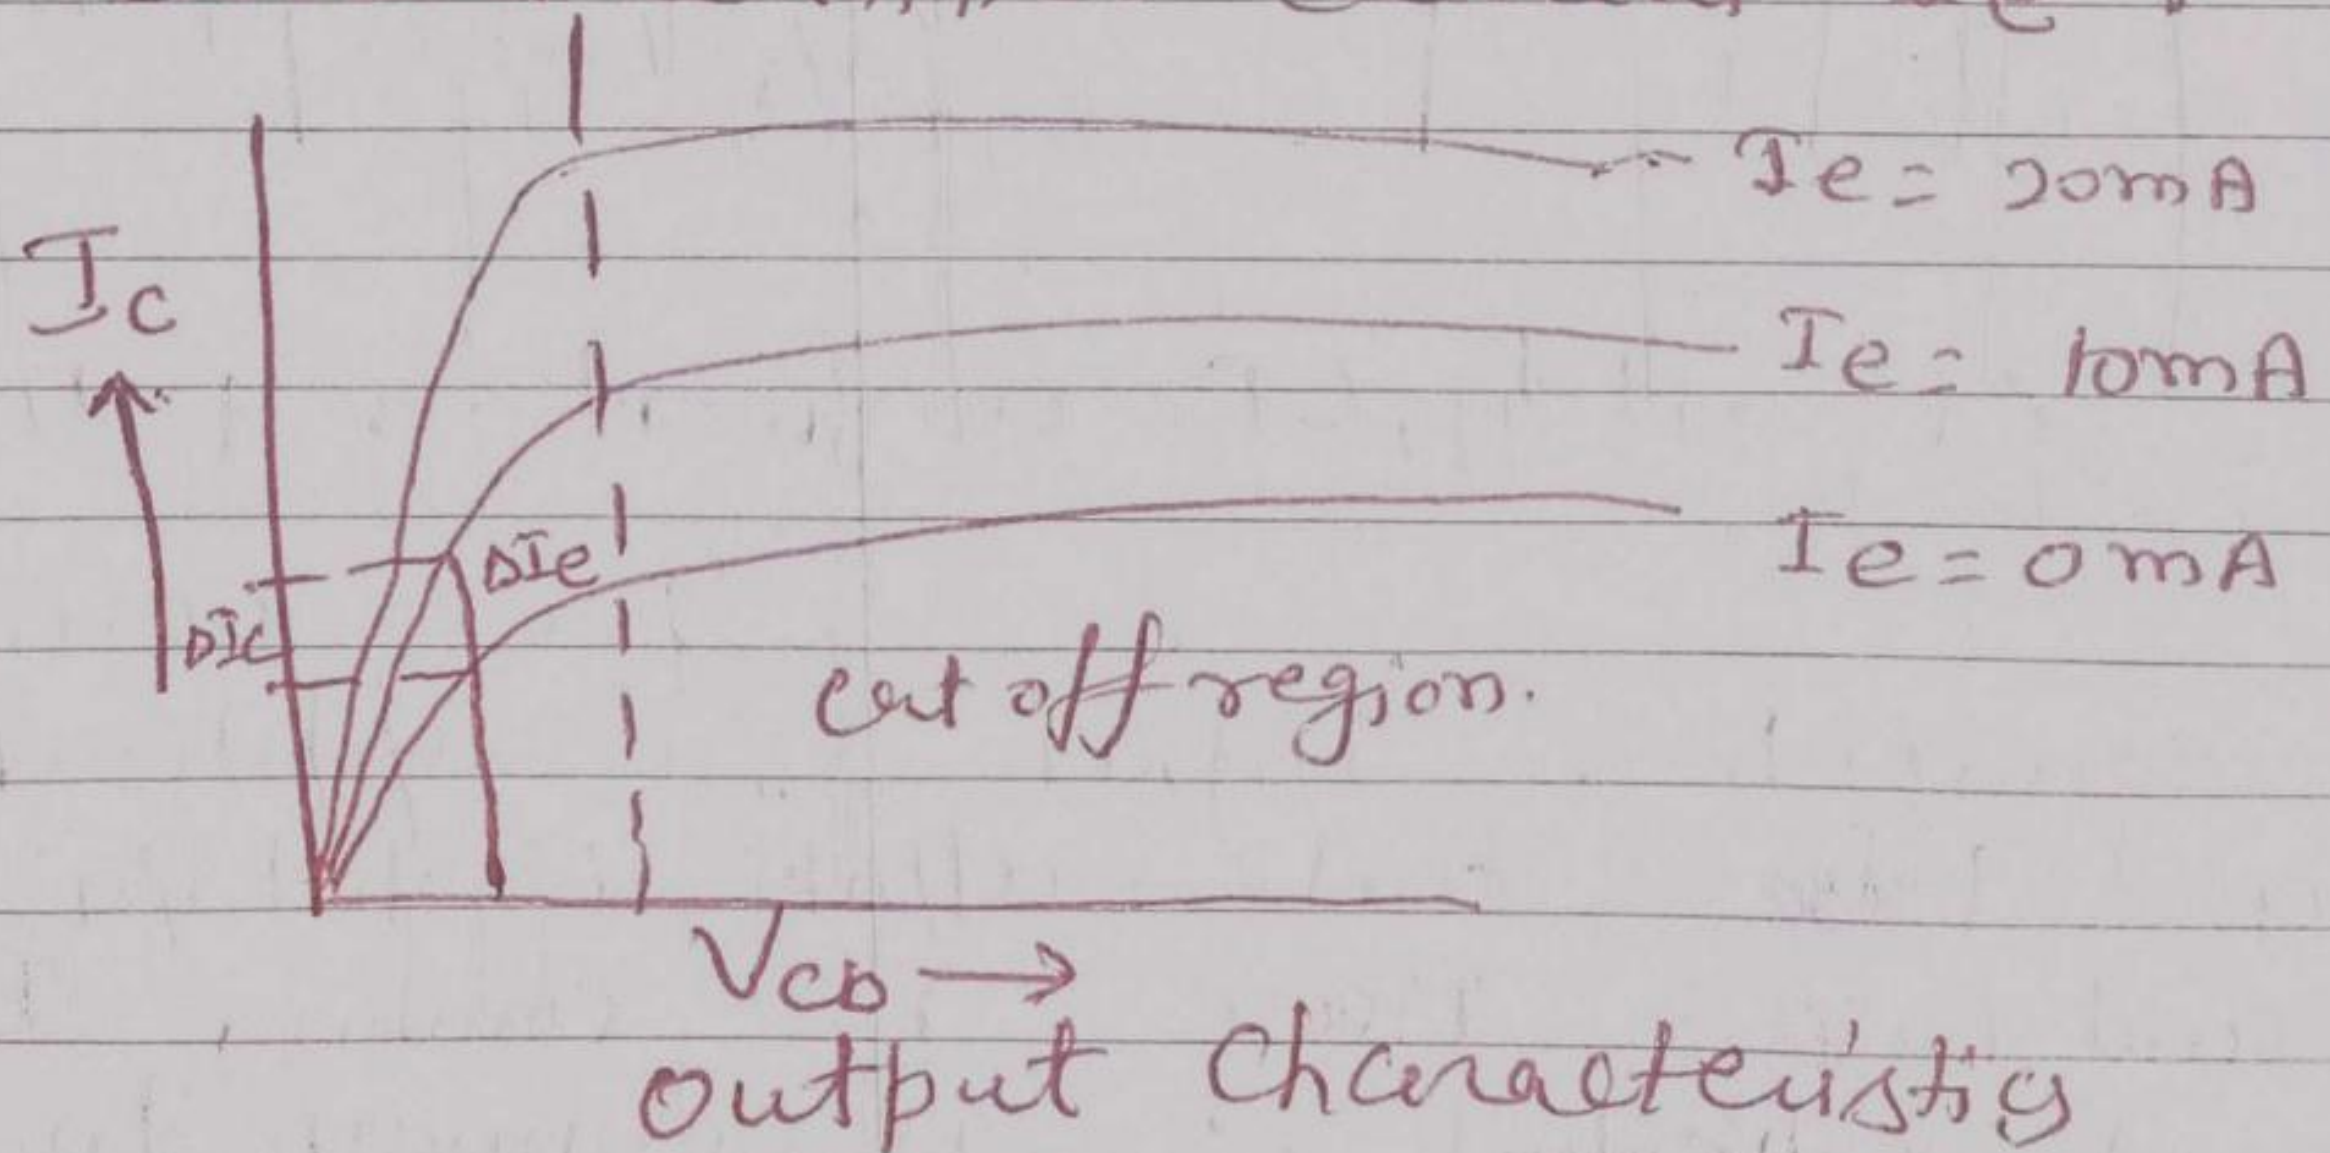 Ie = 20mA
Ic
Ie = 10mA
ΔIe
Ie = 0mA
ΔIc
cut off region.
VCB →
Output Characteristics